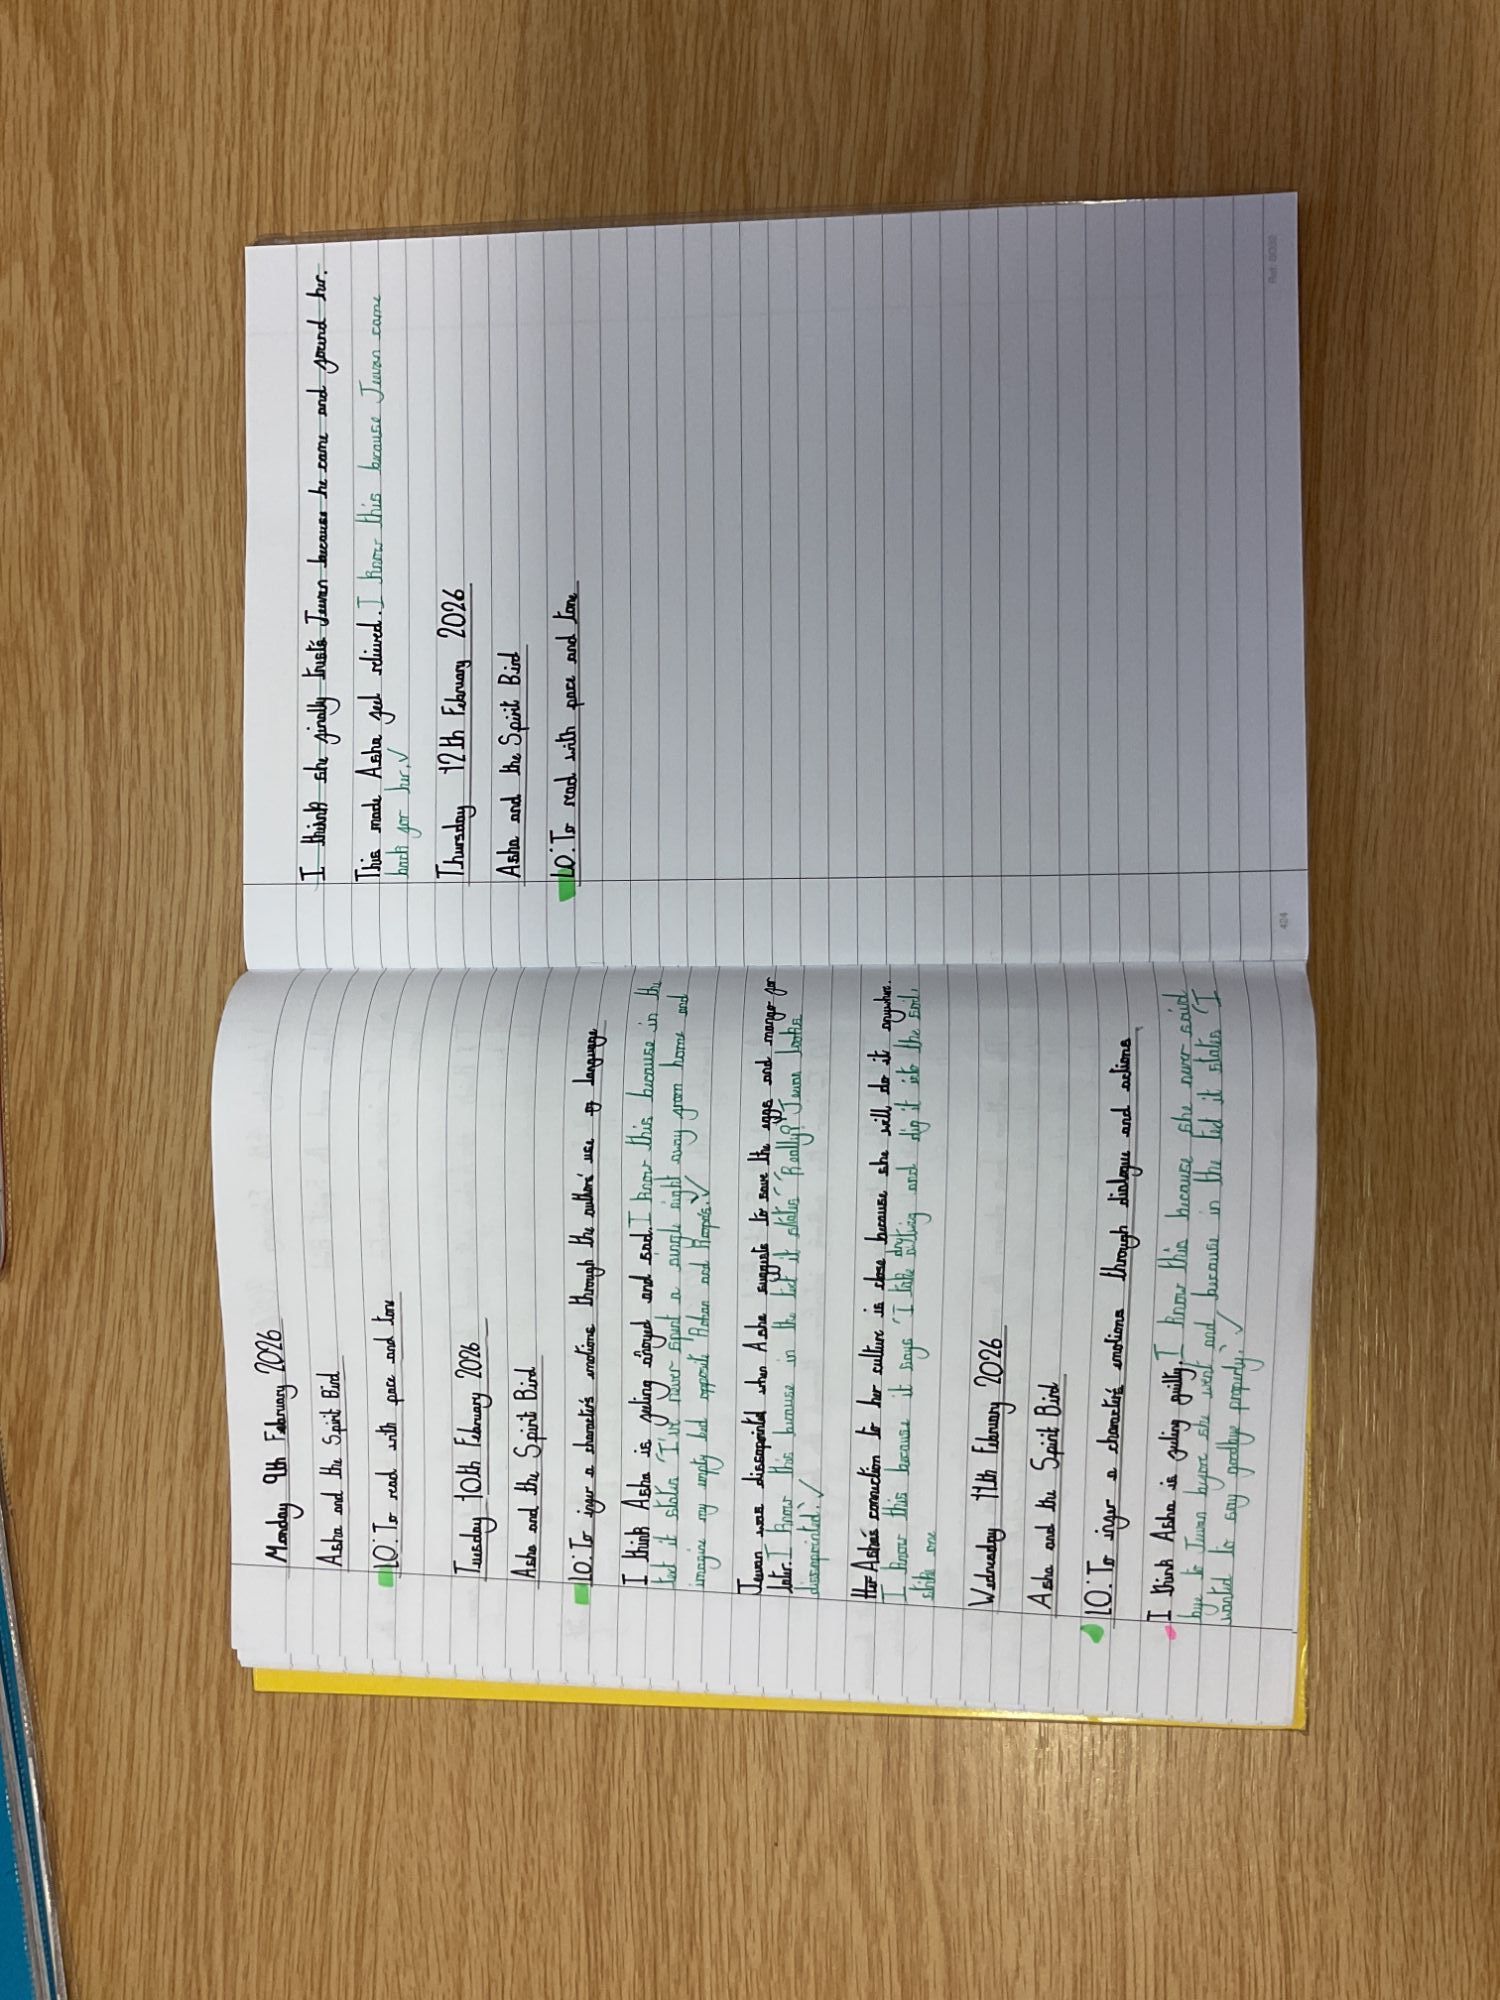 Monday 9th February 2026
Asha and the Spirit Bird
LO: To read with pace and tone
Tuesday 10th February 2026
Asha and the Spirit Bird
LO: To infer a character's emotions through the authors' use of language
I think Asha is feeling anoyed and sad. I know this because in the
text it states 'I've never spent a single night away from home and
imagine my empty bed opposite Rohan and Roopa's. ✓
Jeevan was dissapointed when Asha suggests to save the eggs and mango for
later. I know this because in the text it states "Really?" Jeevan looks
dissapointed.' ✓
Her Asha's connection to her culture is close because she will do it anywhere.
I know this because it says 'I take anything and dig it into the soil,
stike one
Wednesday 11th February 2026
Asha and the Spirit Bird
LO: To infer a character's emotions through dialogue and actions
I think Asha is feeling guilty. I know this because she never said
bye to Jeevan before she went and because in the text it states 'I
wanted to say goodbye properly.' ✓
I think she finally trusts Jeevan because he came and found her.
This made Asha feel relieved. I know this because Jeevan came
back for her. ✓
Thursday 12th February 2026
Asha and the Spirit Bird
LO: To read with pace and tone
424
Ref: